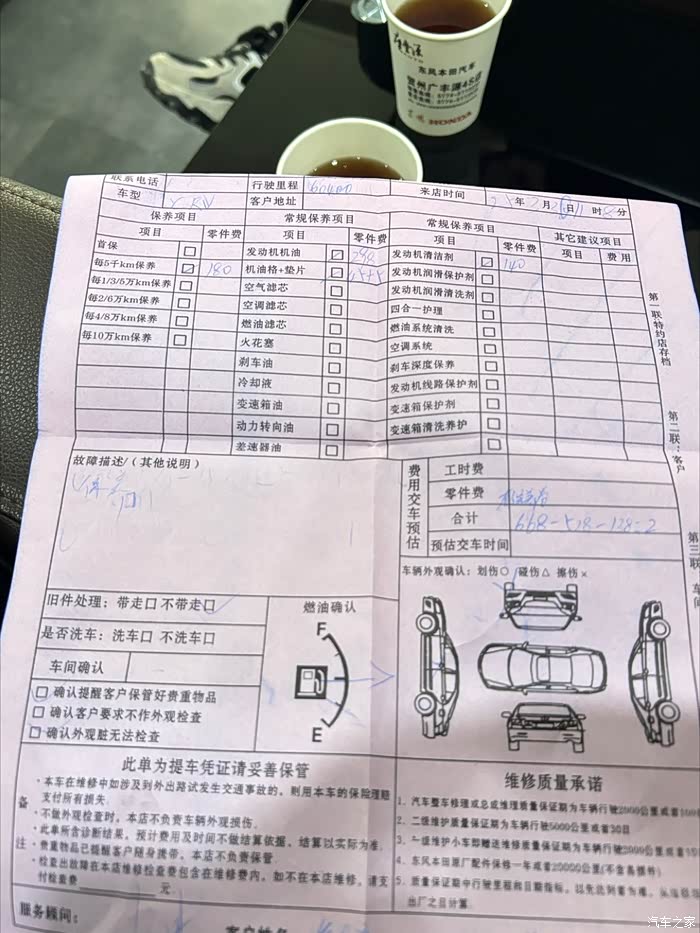 东风本田汽车
贺州广丰源4S店
HONDA
联系电话 行驶里程 来店时间 年 月 日 时 分
车型 客户地址
保养项目 常规保养项目 常规保养项目 其它建议项目
项目 零件费 项目 零件费 项目 零件费 项目 费用
首保 □ 发动机机油 ☑ 发动机清洁剂 ☑ 140
每5千km保养 ☑ 180 机油格+垫片 ☑ 发动机润滑保护剂 □
每1/3/5万km保养 □ 空气滤芯 □ 发动机润滑清洗剂 □
每2/6万km保养 □ 空调滤芯 □ 四合一护理 □
每4/8万km保养 □ 燃油滤芯 □ 燃油系统清洗 □
每10万km保养 □ 火花塞 □ 空调系统 □
刹车油 □ 刹车深度保养 □
冷却液 □ 发动机线路保护剂 □
变速箱油 □ 变速箱保护剂 □
动力转向油 □ 变速箱清洗养护 □
差速器油 □
第一联特约店存档
第二联：客户
第三联 车间
故障描述/（其他说明）
费用交车预估
工时费
零件费
合计 668-528-128=2
预估交车时间
旧件处理：带走口 不带走口
是否洗车：洗车口 不洗车口
车间确认
□ 确认提醒客户保管好贵重物品
□ 确认客户要求不作外观检查
□ 确认外观脏无法检查
燃油确认
F
E
车辆外观确认：划伤○ /碰伤△ 擦伤×
此单为提车凭证请妥善保管
备注
·本车在维修中如涉及到外出路试发生交通事故的，则用本车的保险理赔
支付所有损失.
·不做外观检查时，本店不负责车辆外观损伤.
·此单所含诊断结果，预计费用及时间不做结算依据，结算以实际为准.
·贵重物品已提醒客户随身携带，本店不负责保管.
·检查出故障在本店维修检查费包含在维修费内，如不在本店维修，请支
付检查费 元.
维修质量承诺
1. 汽车整车修理或总成修理质量保证期为车辆行驶
2. 二级维护质量保证期为车辆行驶5000公里或者30日
3. 一级维护小车即赠送维修质量保证期为车辆行驶2000公里或者
4. 东风本田原厂配件保修一年或者20000公里(不含易损件)
5. 质量保证期中行驶里程和日期指标，以先达到者为准，从
出厂之日计算.
服务顾问：
汽车之家